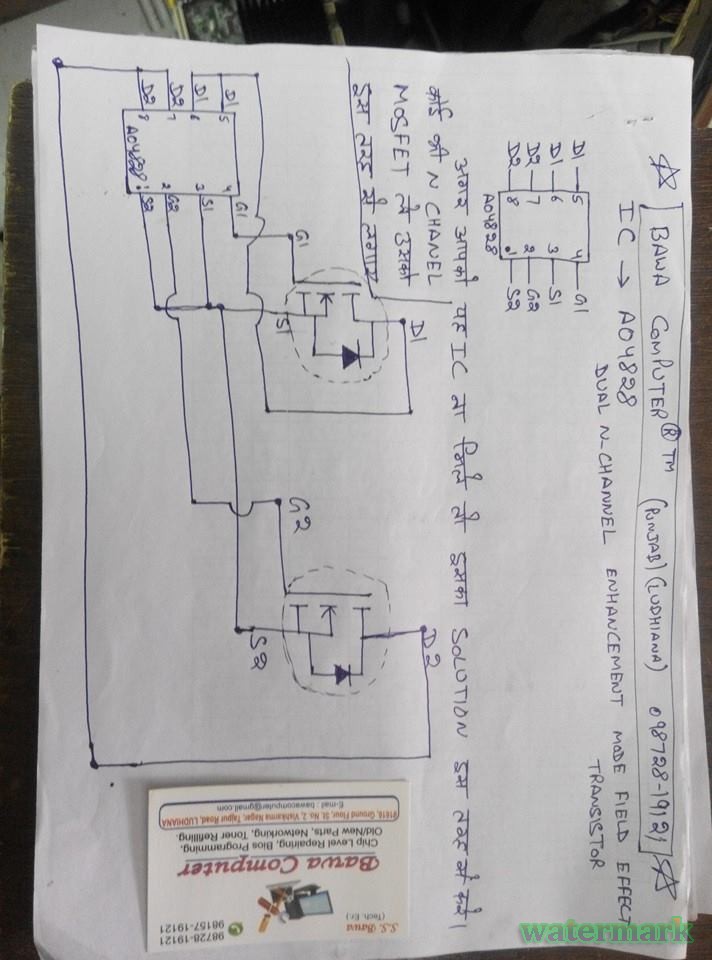 BAWA COMPUTER ® TM (PUNJAB) (LUDHIANA) 098728-19121
IC → AO4828
DUAL N-CHANNEL ENHANCEMENT MODE FIELD EFFECT
TRANSISTOR
D1 5 4 G1
D1 6 3 S1
D2 7 2 G2
D2 8 1 S2
AO4828
अगर आपको यह IC ना मिले तो इसका SOLUTION इस तरह से करे।
कोई भी N CHANEL
MOSFET ले उसको
इस तरह से लगाए
D1 5 4 G1
D1 6 3 S1
D2 7 2 G2
D2 8 1 S2
AO4828
G1
S1
D1
G2
S2
D2
S.S. Bawa
(Tech. Er.)
98728-19121
98157-19121
Bawa Computer
Chip Level Repairing, Bios Programming,
Old/New Parts, Networking, Toner Refilling.
#1616, Ground Floor, St. No. 2, Vishkarma Nagar, Tajpur Road, LUDHIANA
E-mail : bawacomputer@gmail.com
watermark